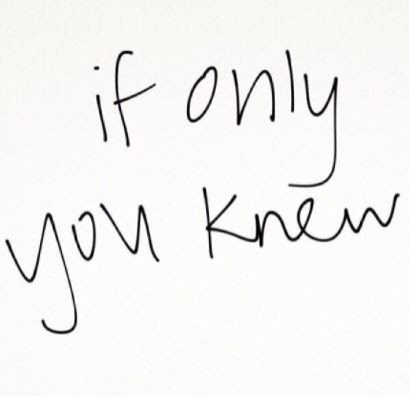 if only
you knew